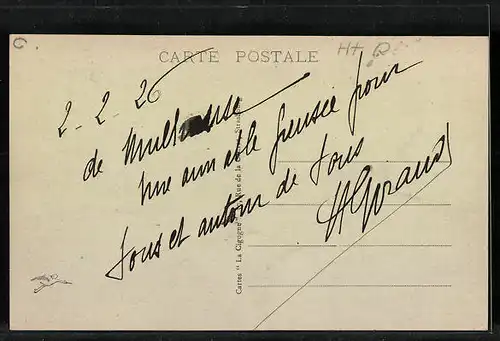 CARTE POSTALE
2-2-26
de Mulhouse
une amicale pensée pour
tous et autour de tous
HGiraud
Cartes "La Cigogne" Rue de la